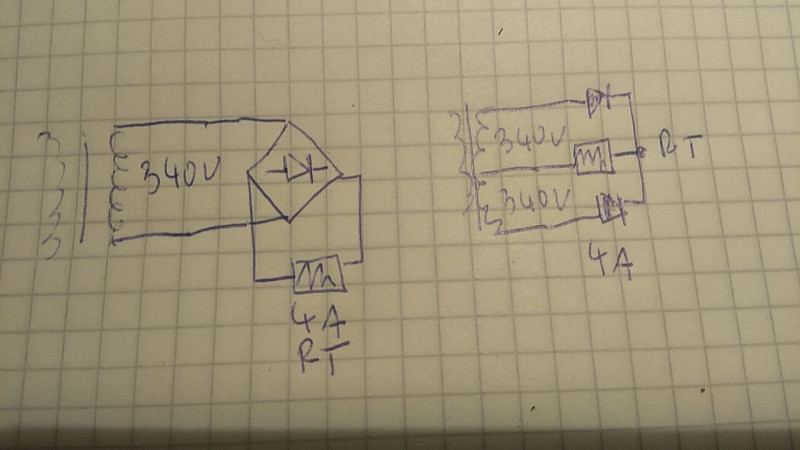 340V
4A
RT
340V
RT
340V
4A